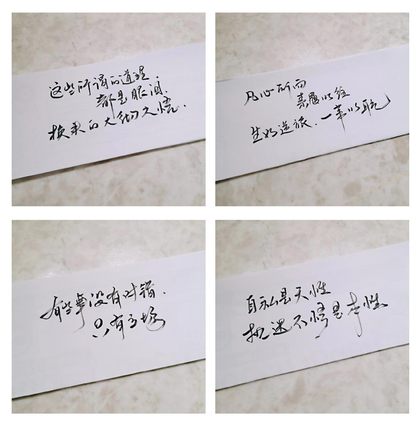 这些所谓的道理,
都是眼泪
换来的大彻大悟.
凡心所向
素履以往
生如逆旅.一苇以航
有些事没有对错,
只有立场
自私是天性
执迷不悟是本性